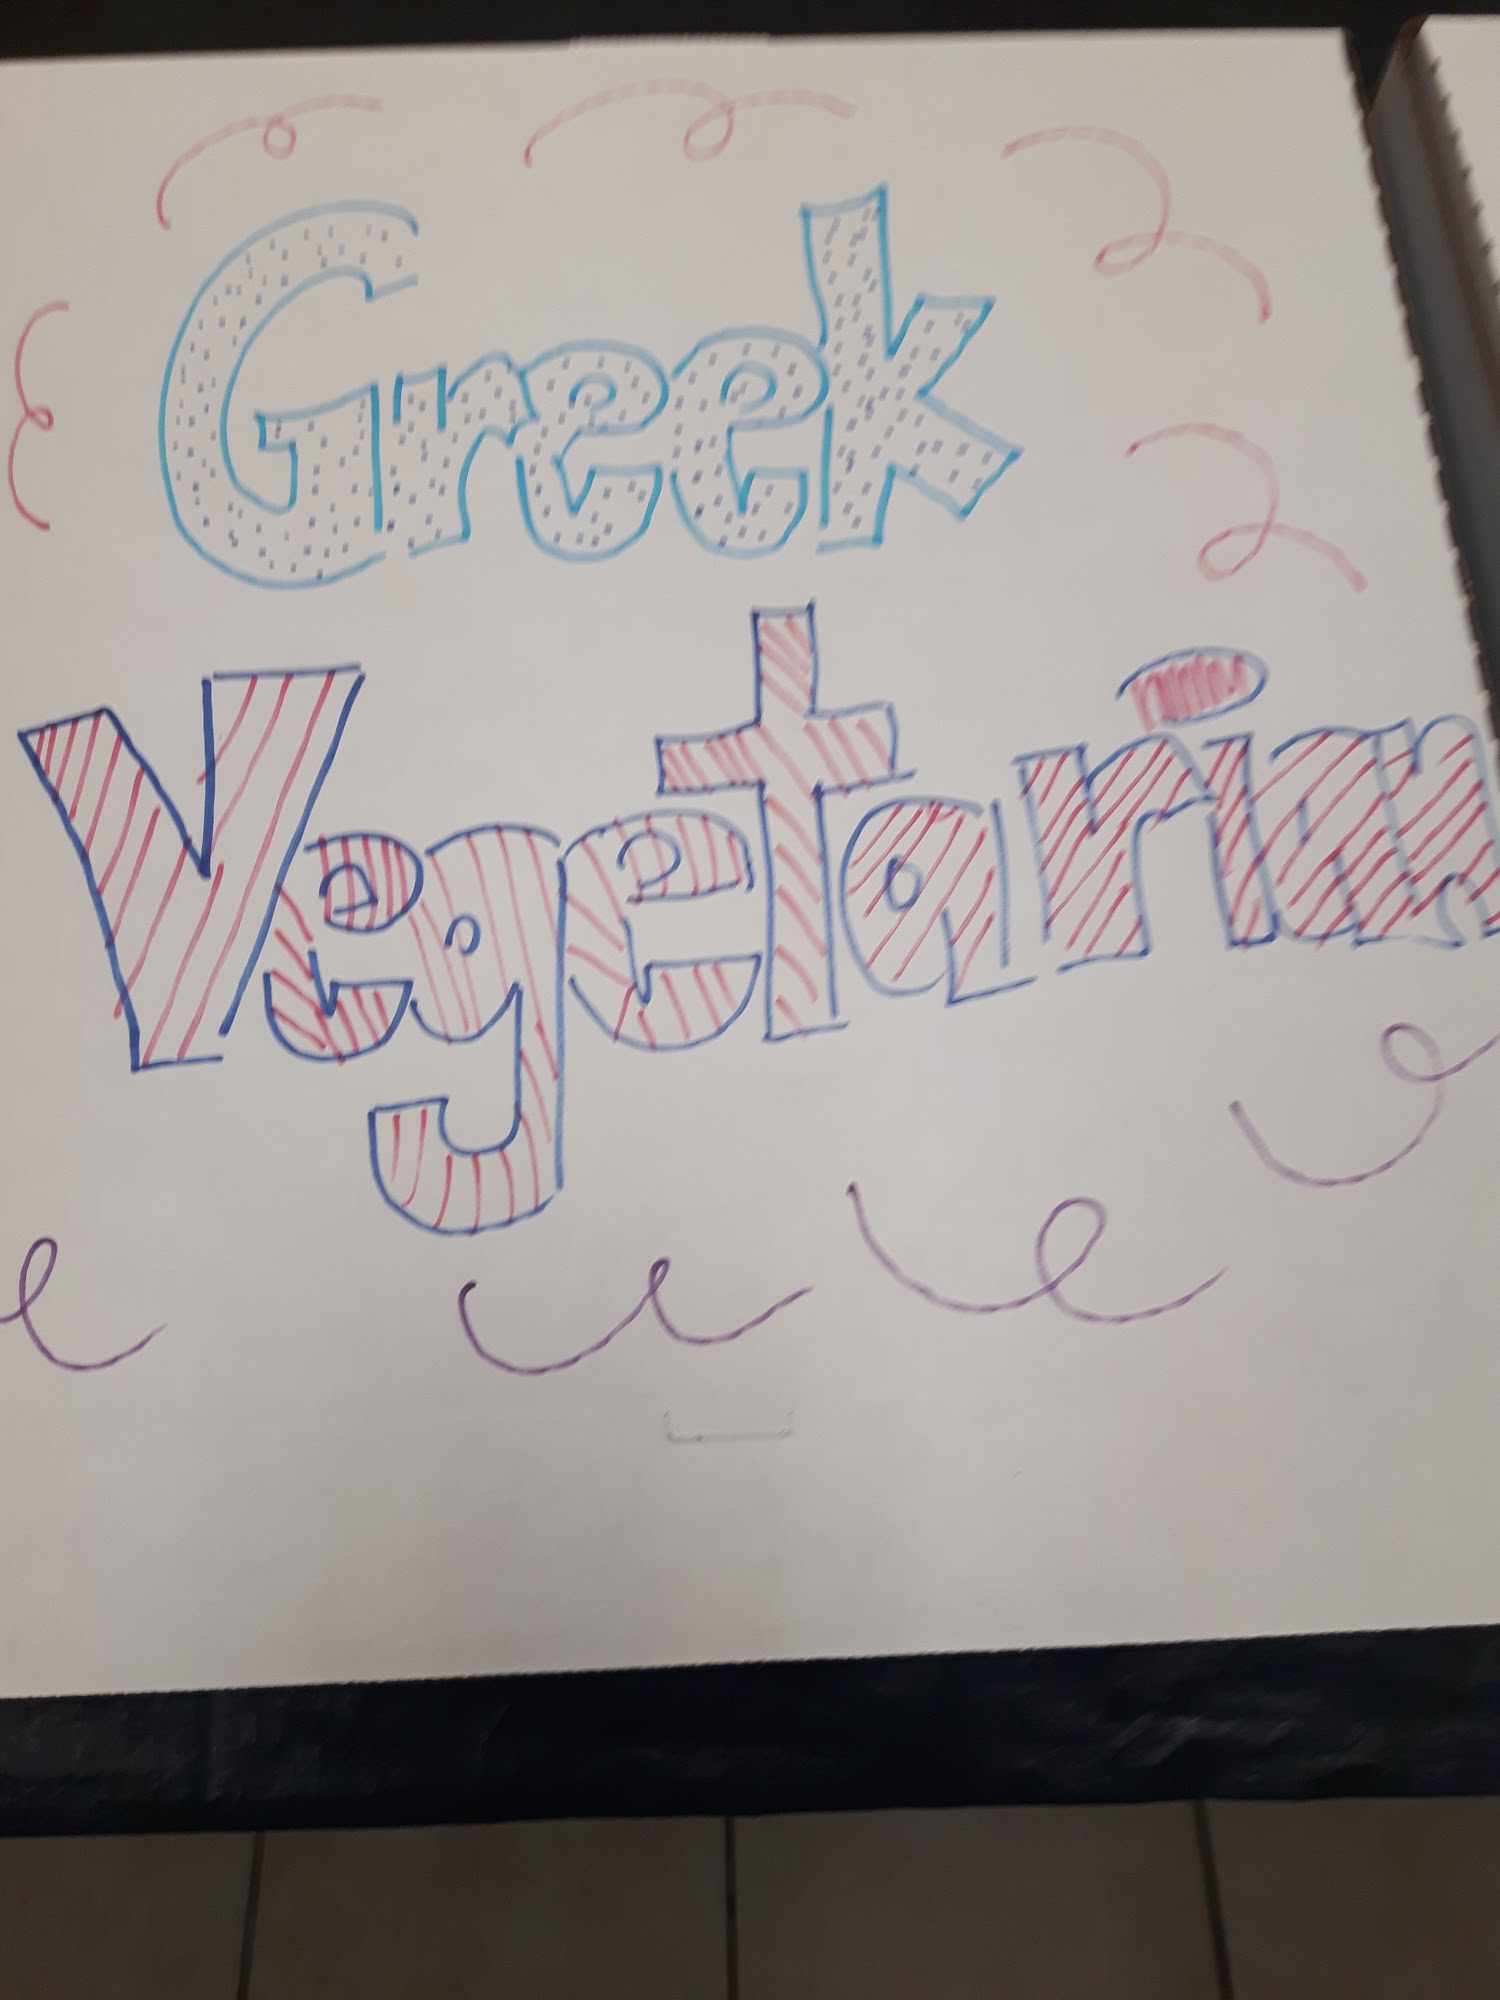 Greek
Vegetarian